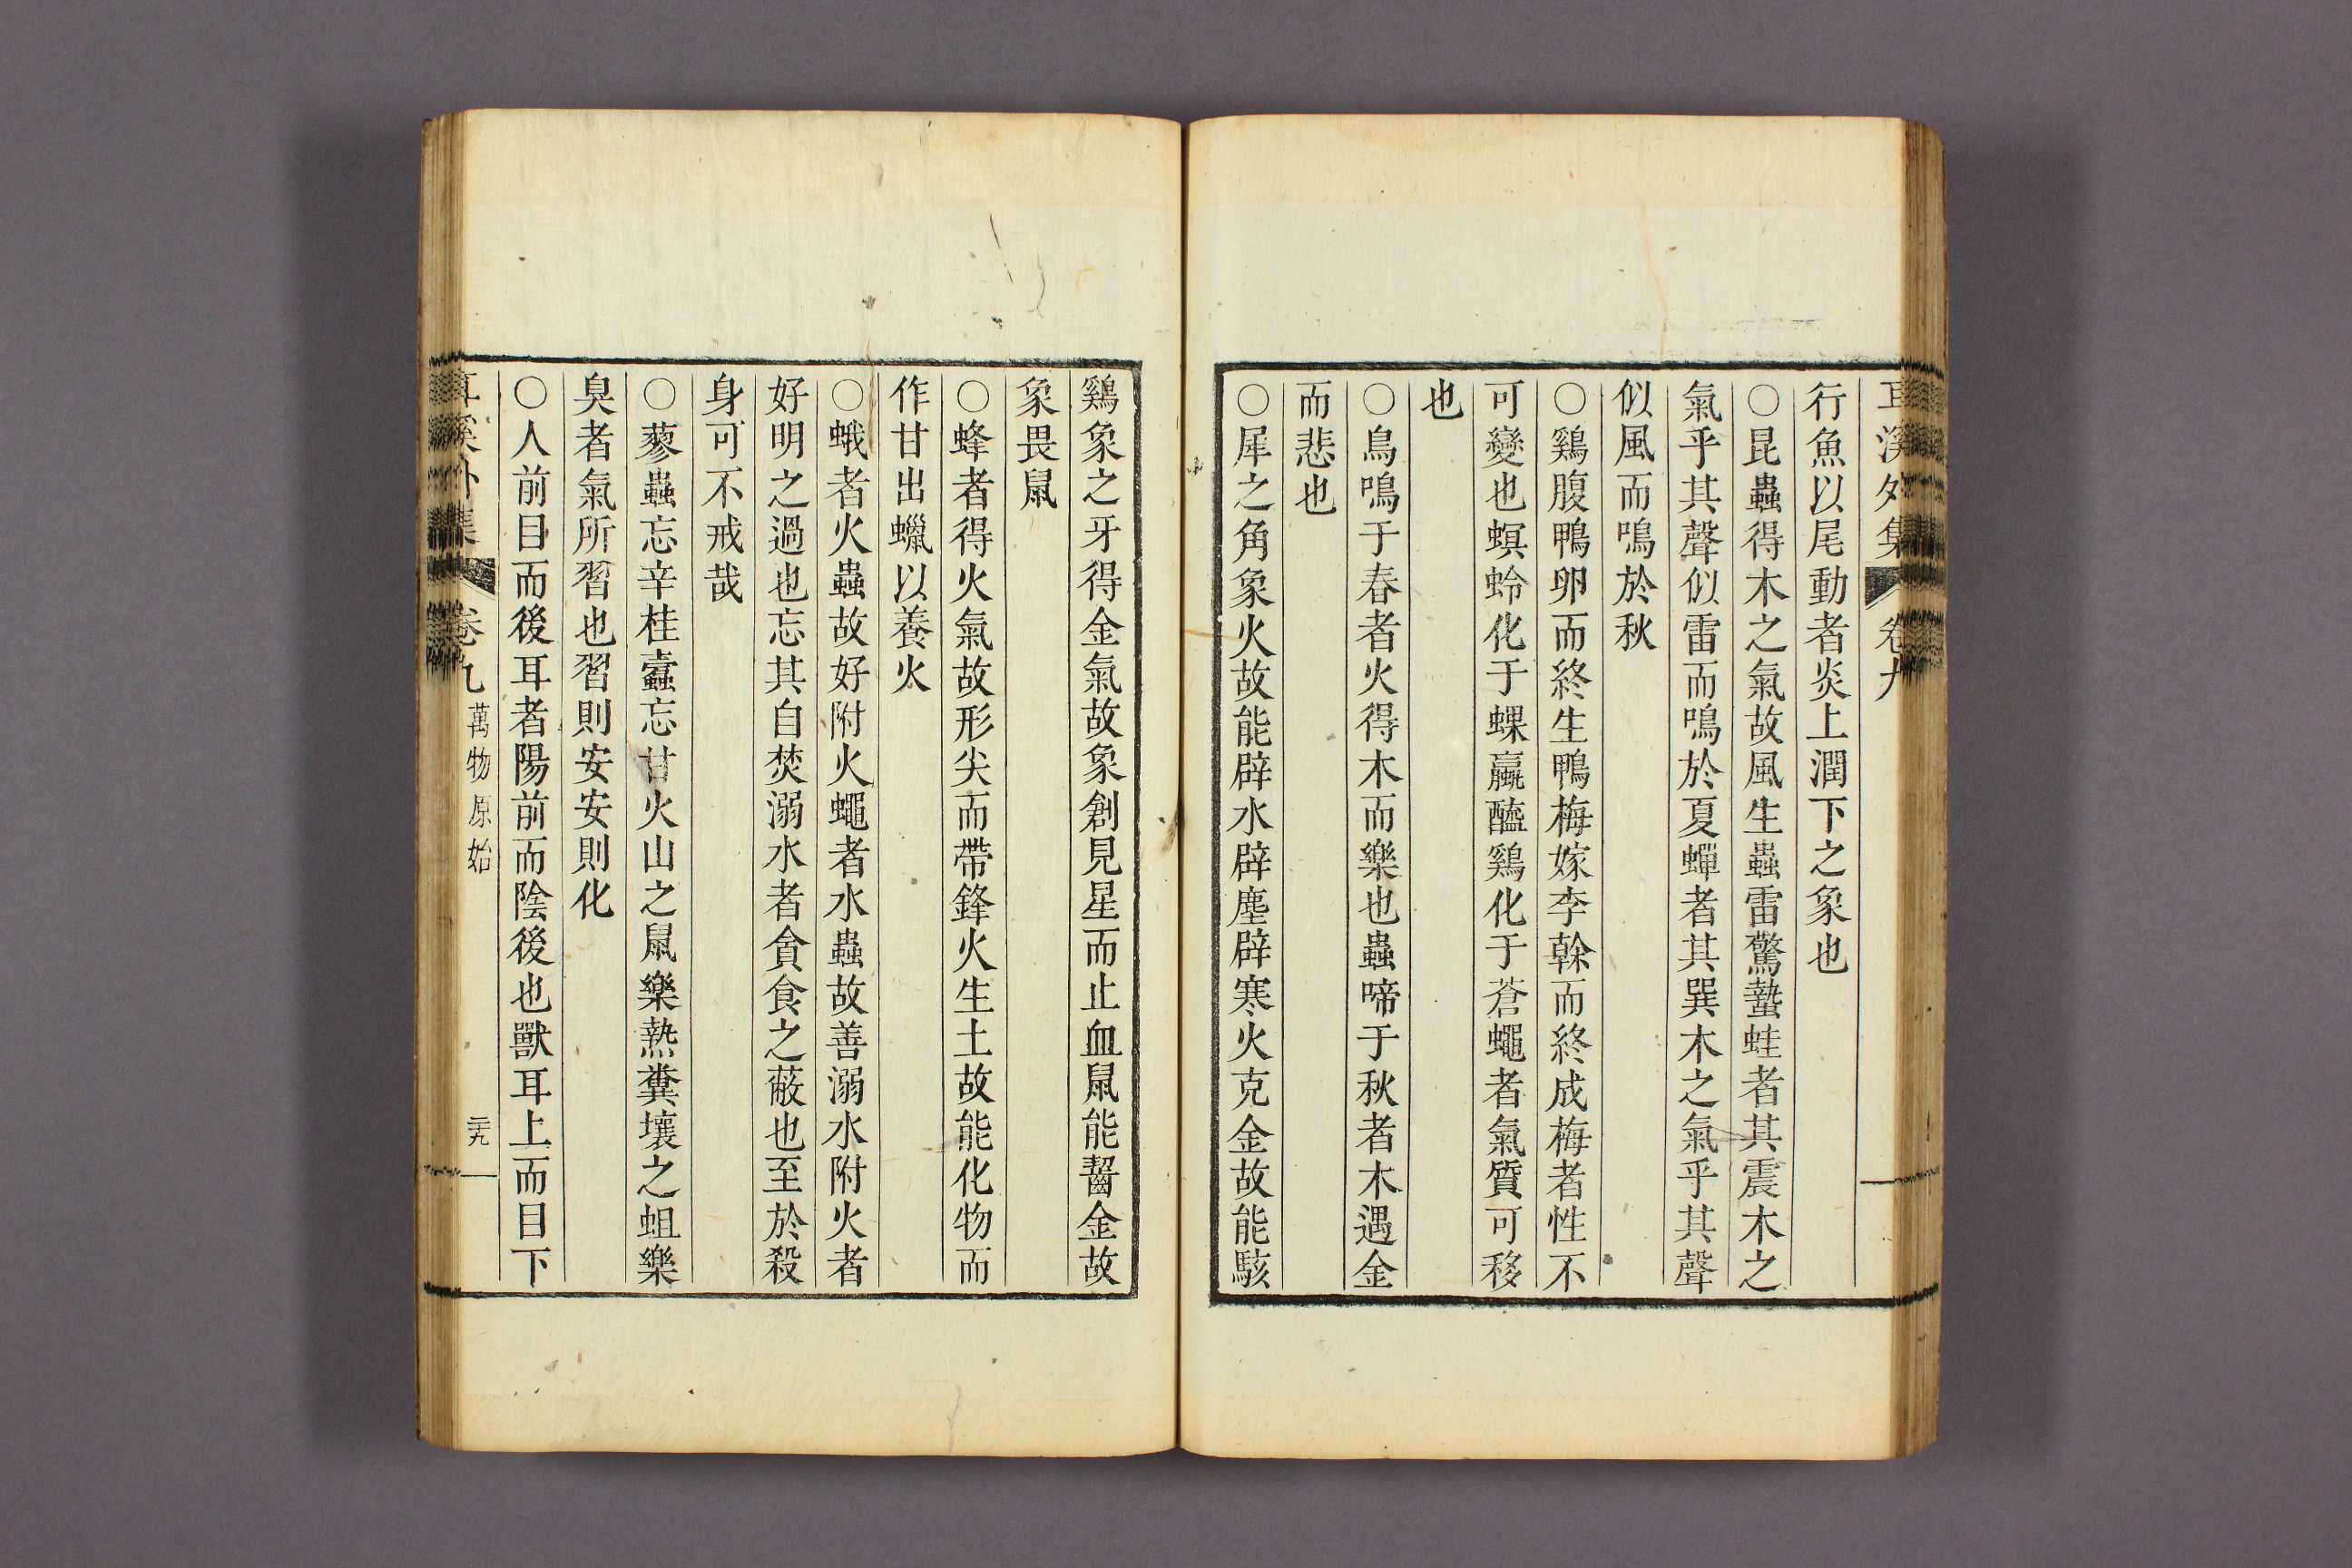 耳溪外集 卷九
行魚以尾動者炎上潤下之象也
○昆蟲得木之氣故風生蟲雷驚蟄蛙者其震木之
氣乎其聲似雷而鳴於夏蟬者其巽木之氣乎其聲
似風而鳴於秋
○鷄腹鴨卵而終生鴨梅嫁李榦而終成梅者性不
可變也螟蛉化于蜾蠃醯鷄化于蒼蠅者氣質可移
也
○鳥鳴于春者火得木而樂也蟲啼于秋者木遇金
而悲也
○犀之角象火故能辟水辟塵辟寒火克金故能駭
鷄象之牙得金氣故象創見星而止血鼠能齧金故
象畏鼠
○蜂者得火氣故形尖而帶鋒火生土故能化物而
作甘出蠟以養火
○蛾者火蟲故好附火蠅者水蟲故善溺水附火者
好明之過也忘其自焚溺水者貪食之蔽也至於殺
身可不戒哉
○蓼蟲忘辛桂蠹忘甘火山之鼠樂熱糞壤之蛆樂
臭者氣所習也習則安安則化
○人前目而後耳者陽前而陰後也獸耳上而目下
耳溪外集 卷九 萬物原始 三十九